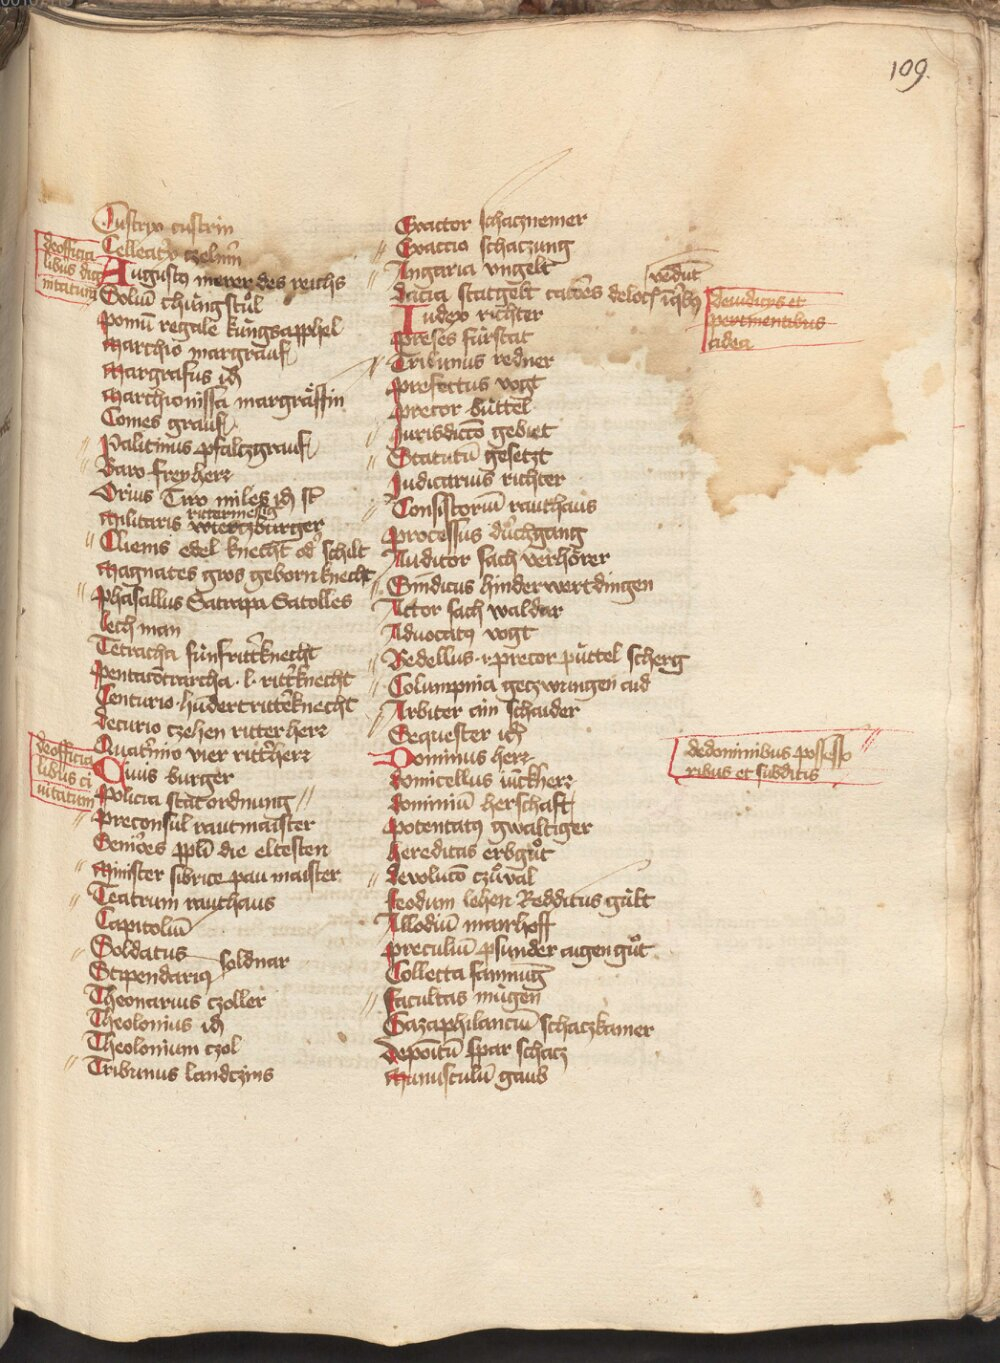 109.
Custrix custrin
Celleratrix czelnin
de officia
libus dig
nitatum
Augustus merer des reichs
Soliu thungstul
Pomu regale kungsapphel
Marchio margrauf
Margrafus id
Marchionissa margräffin
Comes grauf
Palitinus pfaltzgrauf
Baro freyherr
Miles id
rittermessig
Militaris wiertzburger
Cliens edel knecht od schilt
Magnates gros geborn knecht
Phasallus Satrapa Satolles
lech man
Tetracha funf rittknecht
Pentacotrarcha l rittknecht
Centurio hundert ritterknecht
Decurio czehen ritter herr
Quatrnio vier rittherr
de officia
libus ci
uitatum
Ciuis burger
Policia statordnung
Preconsul rautmaister
Seniores ppli die eltesten
Minister fabrice pau maister
Teatrum rauthaus
Capitoliu
Soldatus
Stipendarius soldnar
Theonarius czoller
Theolonius id
Theolonium czol
Tribunus landczins
Exactor schacznemer
Exactio schaczung
Angaria vngelt
Dacia statgelt
vedut
Iudex richter
de iudicijs et
pertinentibus
ad ea
Preses furstat
Tribunus redner
Prefectus vogt
Pretor büttel
Iurisdicto gebiet
Statutu gesetzt
Iudicarius richter
Consistoriu rauthaus
Processus durchgang
Auditor sach verhörer
Sindicus hinderwertdingen
Actor sach waldar
Advocatus vogt
Bedellus precor püttel scherg
Columpnia geczwungen aid
Arbiter ain schaider
Sequester id
Dominus herr
de dominibus possesso
ribus et subditis
Domicellus iunckherr
Dominiu herschaft
Potentatus gwaltiger
Hereditas erbgut
Devoluto czuval
Feodum lehen Redditus gült
Allodiu mairhoff
Preculiu psunder aigen gut
Collecta samnug
Facultas mugen
Gazaphilanciu schaczkamer
Depositu spar schacz
Munusculu gaub